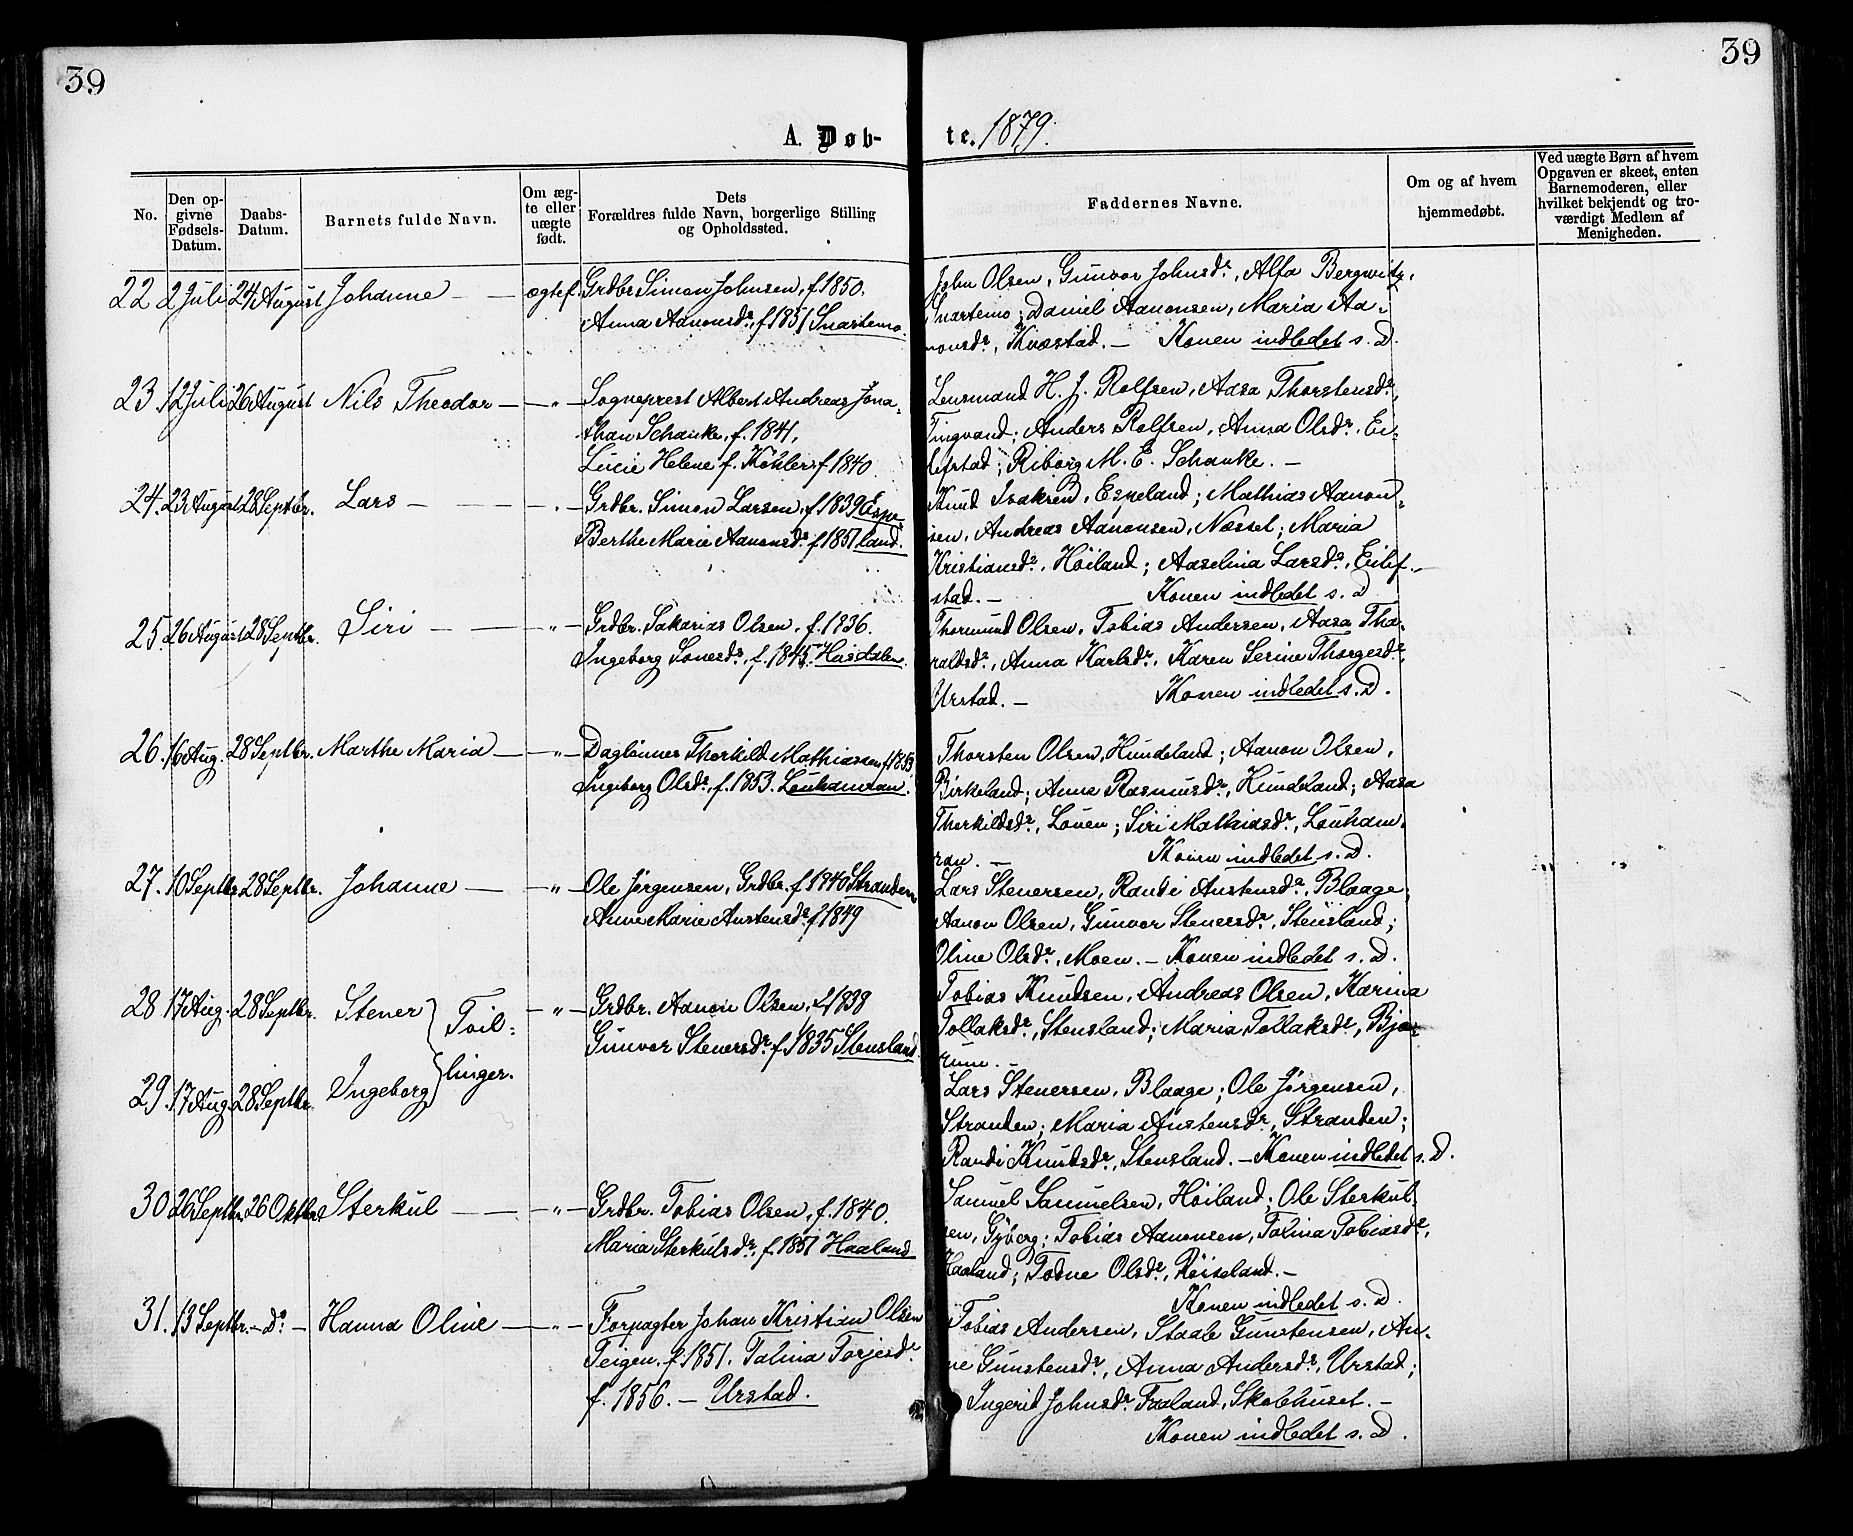 39
39
A. Døb-
te. 1879.
No.
Den op-
givne
Fødsels-
Datum.
Daabs-
Datum.
Barnets fulde Navn.
Om æg-
te eller
uægte
født.
Dets
Forældres fulde Navn, borgerlige Stilling
og Opholdssted.
Faddernes Navne.
Om og af hvem
hjemmedøbt.
Ved uægte Børn af hvem
Opgaven er skeet, enten
Barnemoderen, eller
hvilket bekjendt og tro-
værdigt Medlem af
Menigheden.
22 2 Juli 24 August Johanne — — ægtef. Grdbr. Simon Johnsen, f. 1850.
Anna Aanonsdr., f. 1851 Snartemo.
John Olsen, Gunvor Johnsdr., Alfa Bergwitz,
Snartemo; Daniel Aanonsen, Maria Aa-
nonsdr., Kvæstad. — Konen indledet s. D.
23 12 Juli 26 August Nils Theodor — — " — Sogneprest Albert Andreas Jona-
than Schanke, f. 1841,
Lucie Helene f. Køhler f 1840
Lensmand H. J. Rolfsen, Aasa Thorstensdr.,
Tingvand; Anders Rolfsen, Anna Olsdr., Ei-
lefstad; Riborg M. E. Schanke. —
24. 23 August 28 Septbr. Lars — — — — " — Grdbr. Simon Larsen, f 1839 Espe-
Berthe Marie Aanonsdr. f 1851 land.
Knud Isaksen, Espeland; Mathias Aanon-
sen, Andreas Aanonsen, Næsset; Maria
Kristiansdr., Høiland; Aaselina Larsdr., Eilef-
stad. — Konen indledet s. D
25. 26 August 28 Septbr. Siri — — — " — Grdbr. Sakarias Olsen, f. 1836.
Ingeborg Sonesdr., f. 1845. Hasdalen.
Thormund Olsen, Tobias Andersen, Aasa Tha-
raldsdr., Anna Karlsdr., Karen Serine Thorgesdr.,
Urstad. — Konen indledet s. D.
26. 16 Aug. 28 Septbr. Marthe Maria — — " — Daglønner Therkild Mathiassen f 1853
Ingeborg Olsdr., f. 1853. Louhamran.
Thorsten Olsen, Hundeland; Aanon Olsen,
Birkeland; Anna Rasmusdr., Hundeland; Aasa
Therkildsdr., Louen; Siri Mathiasdr., Louham-
ran. — Konen indledet s. D.
27. 10 Septbr. 28 Septbr. Johanne — — " — Ole Jørgensen, Grdbr. f 1840 Stranden
Anne Marie Austensdr. f 1849
Lars Stenersen, Randi Austensdr., Blaage;
Aanon Olsen, Gunvor Stenersdr., Stensland;
Oline Olsdr., Moen. — Konen indledet s. D.
28 17 Aug. 28 Septbr. Stener } Tvil- — " — Grdbr. Aanon Olsen, f 1838
Gunvor Stenersdr. f 1835 Stensland.
Tobias Knudsen, Andreas Olsen, Karina
Tollaksdr., Stensland; Maria Tollaksdr., Bjør-
rum. —
29. 17 Aug. 28 Septbr. Ingeborg } linger.
Lars Stenersen, Blaage; Ole Jørgensen,
Stranden; Maria Austensdr., Stranden;
Randi Knudsdr., Stensland. — Konen indledet s. D.
30 26 Septbr. 26 Oktbr. Sterkul — — — " — Grdbr. Tobias Olsen, f. 1840.
Maria Sterkulsdr., f. 1851 Haaland
Samuel Samuelsen, Høiland; Ole Sterkul-
sen, Gyberg; Tobias Aanonsen, Tolina Tobiasdr.,
Haaland; Todne Olsdr., Røiseland. —
Konen indledet s. D.
31. 13 Septbr. — do. — Hanna Oline — — " — Forpagter Johan Kristian Olsen
Teigen, f. 1851. Talina Torjesdr.
f. 1856. — Urstad.
Tobias Andersen, Staale Gunstensen, An-
ne Gunstensdr., Anna Andersdr., Urstad;
Ingerid Johnsdr. Faaland, Skolehuset. —
Konen indledet s. D.